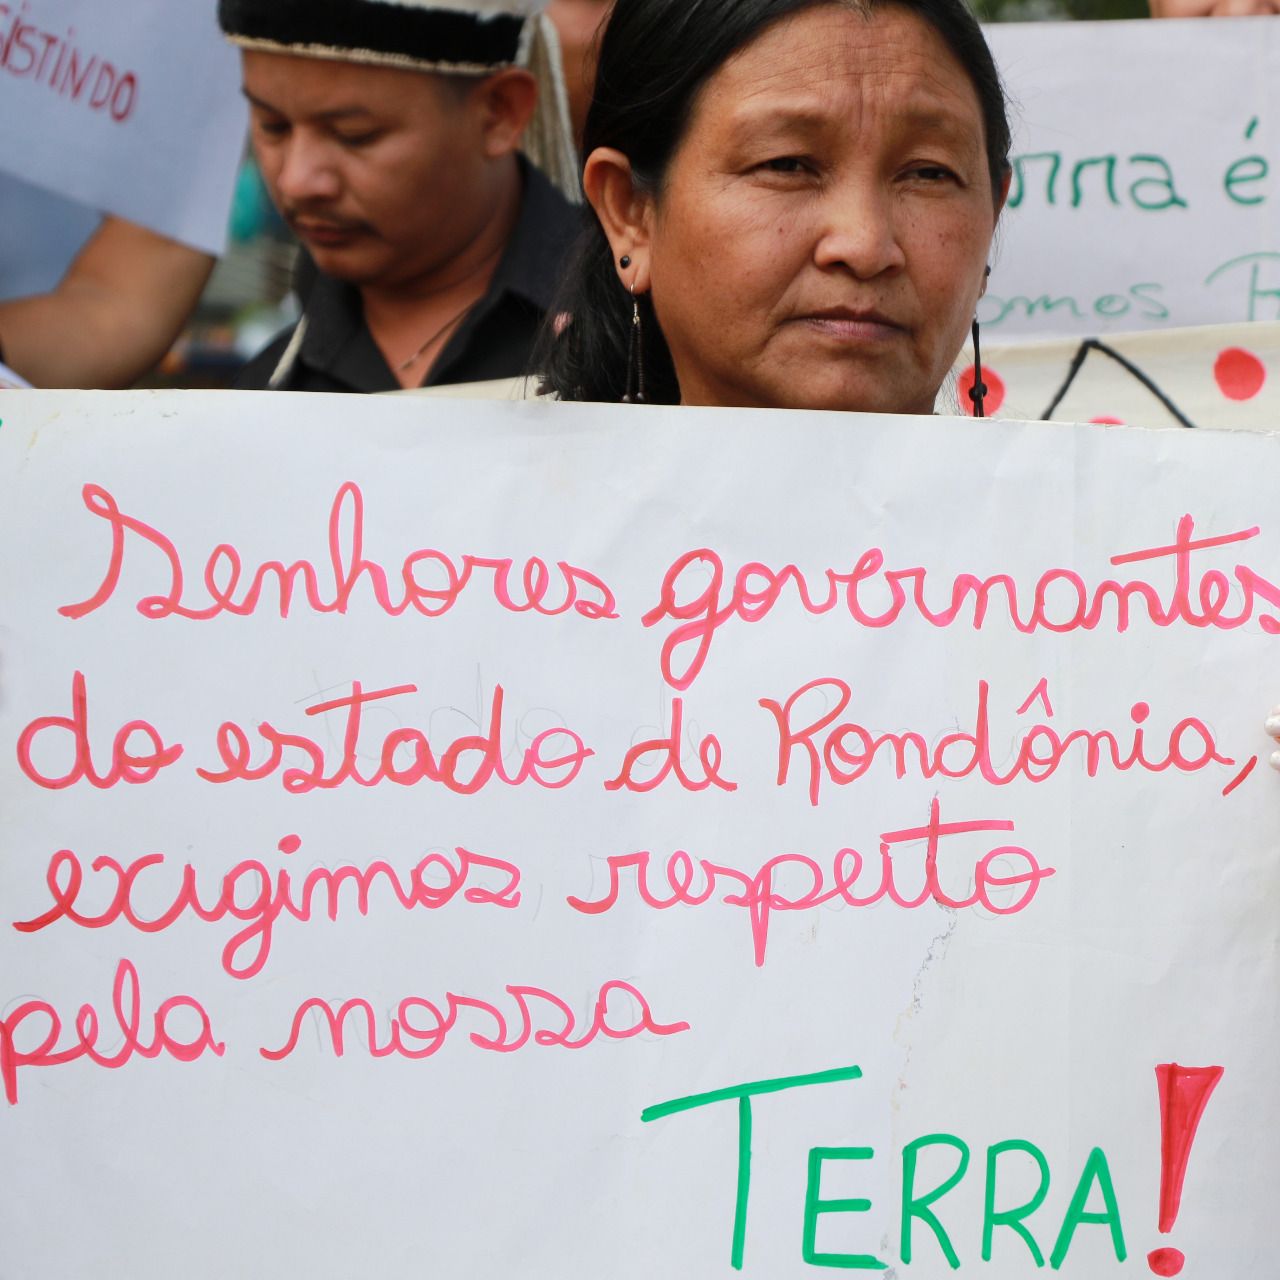 SISTINDO
é
omos
Senhores governantes
do estado de Rondônia,
exigimos respeito
pela nossa
TERRA!